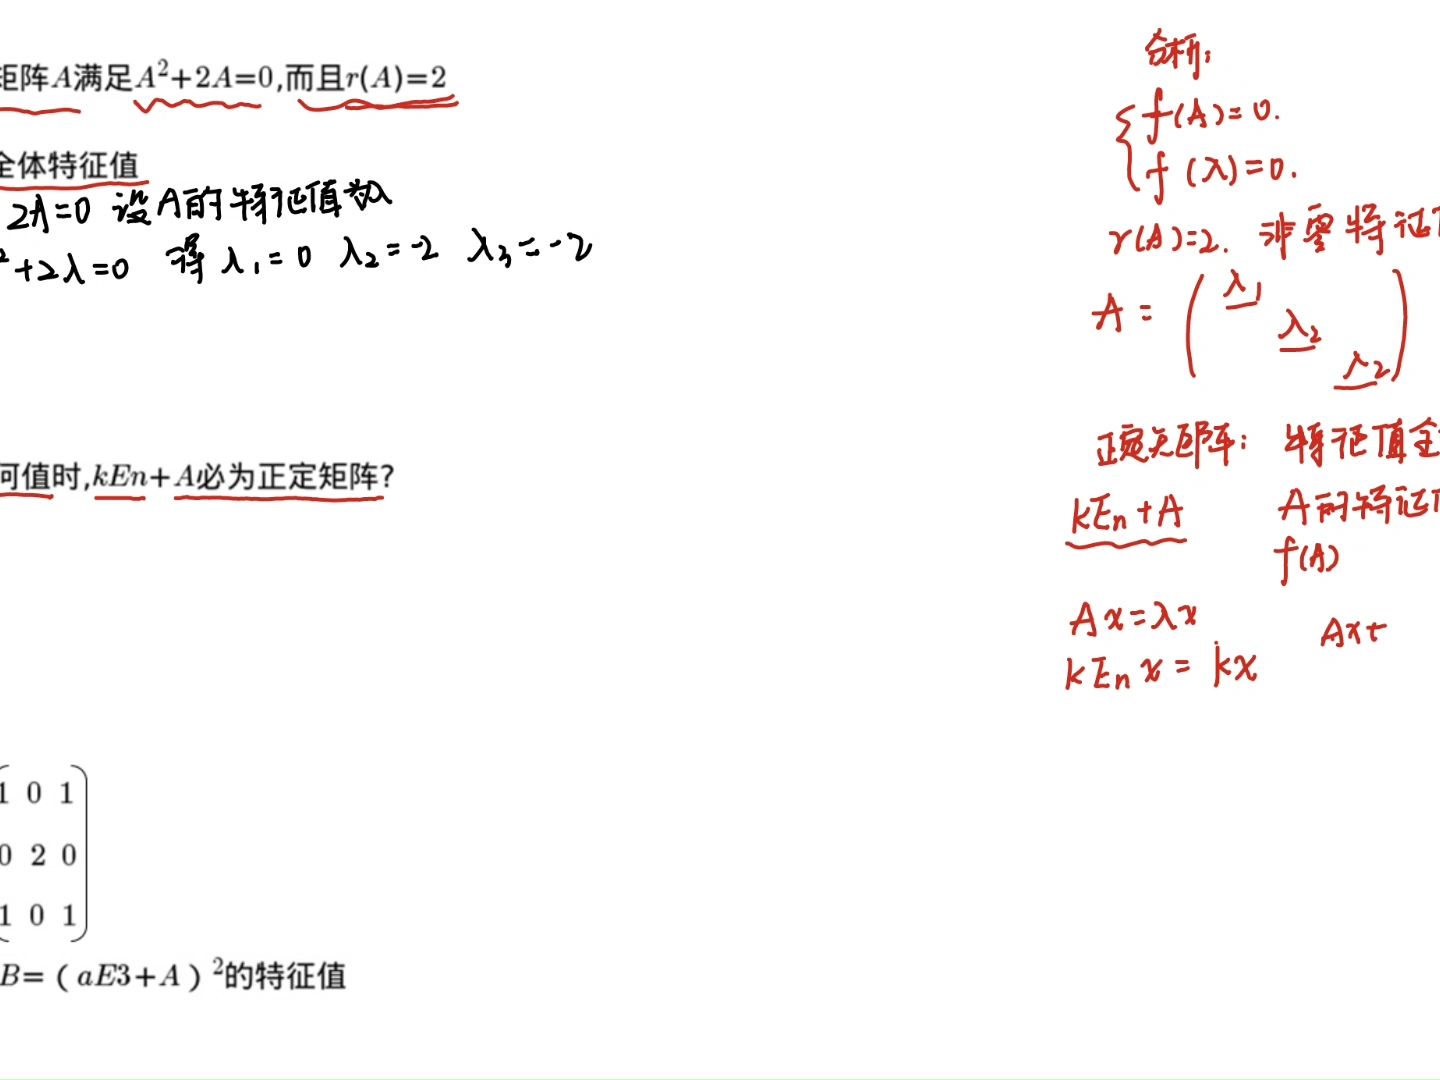 矩阵A满足A²+2A=0,而且r(A)=2
全体特征值
2A=0 设A的特征值为λ
²+2λ=0 得 λ₁=0 λ₂=-2 λ₃=-2
何值时,kEn+A必为正定矩阵?
1 0 1
0 2 0
1 0 1
B=(aE3+A)²的特征值
分析:
f(A)=0.
f(λ)=0.
r(A)=2. 非零特征
A=(λ₁
λ₂
λ₂)
正定矩阵: 特征值全
kEn+A A的特征
f(A)
Ax=λx
Ax+
kEnx=kx